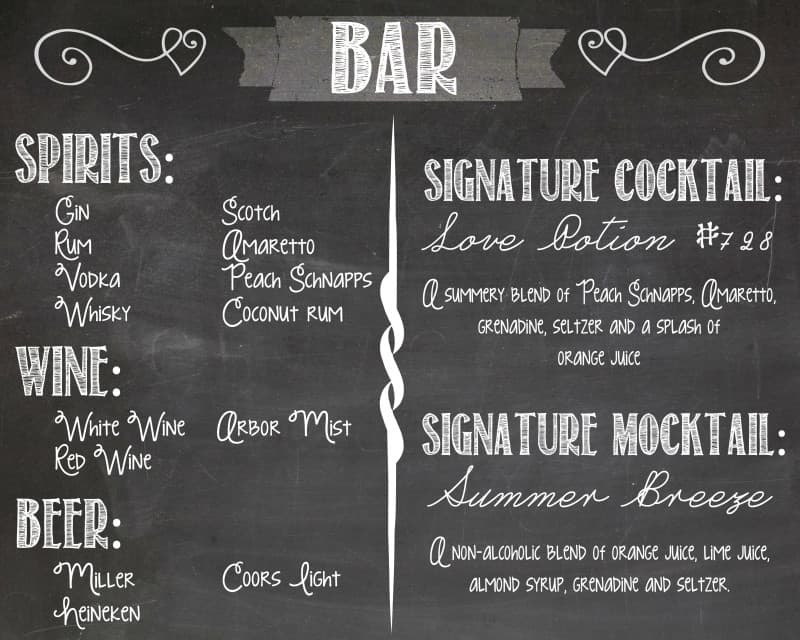 BAR
SPIRITS:
Gin
Rum
Vodka
Whisky
Scotch
Amaretto
Peach Schnapps
Coconut rum
WINE:
White Wine
Red Wine
Arbor Mist
BEER:
Miller
Heineken
Coors Light
SIGNATURE COCKTAIL:
Love Potion #728
A summery blend of Peach Schnapps, Amaretto,
grenadine, seltzer and a splash of
orange juice
SIGNATURE MOCKTAIL:
Summer Breeze
A non-alcoholic blend of orange juice, lime juice,
almond syrup, grenadine and seltzer.